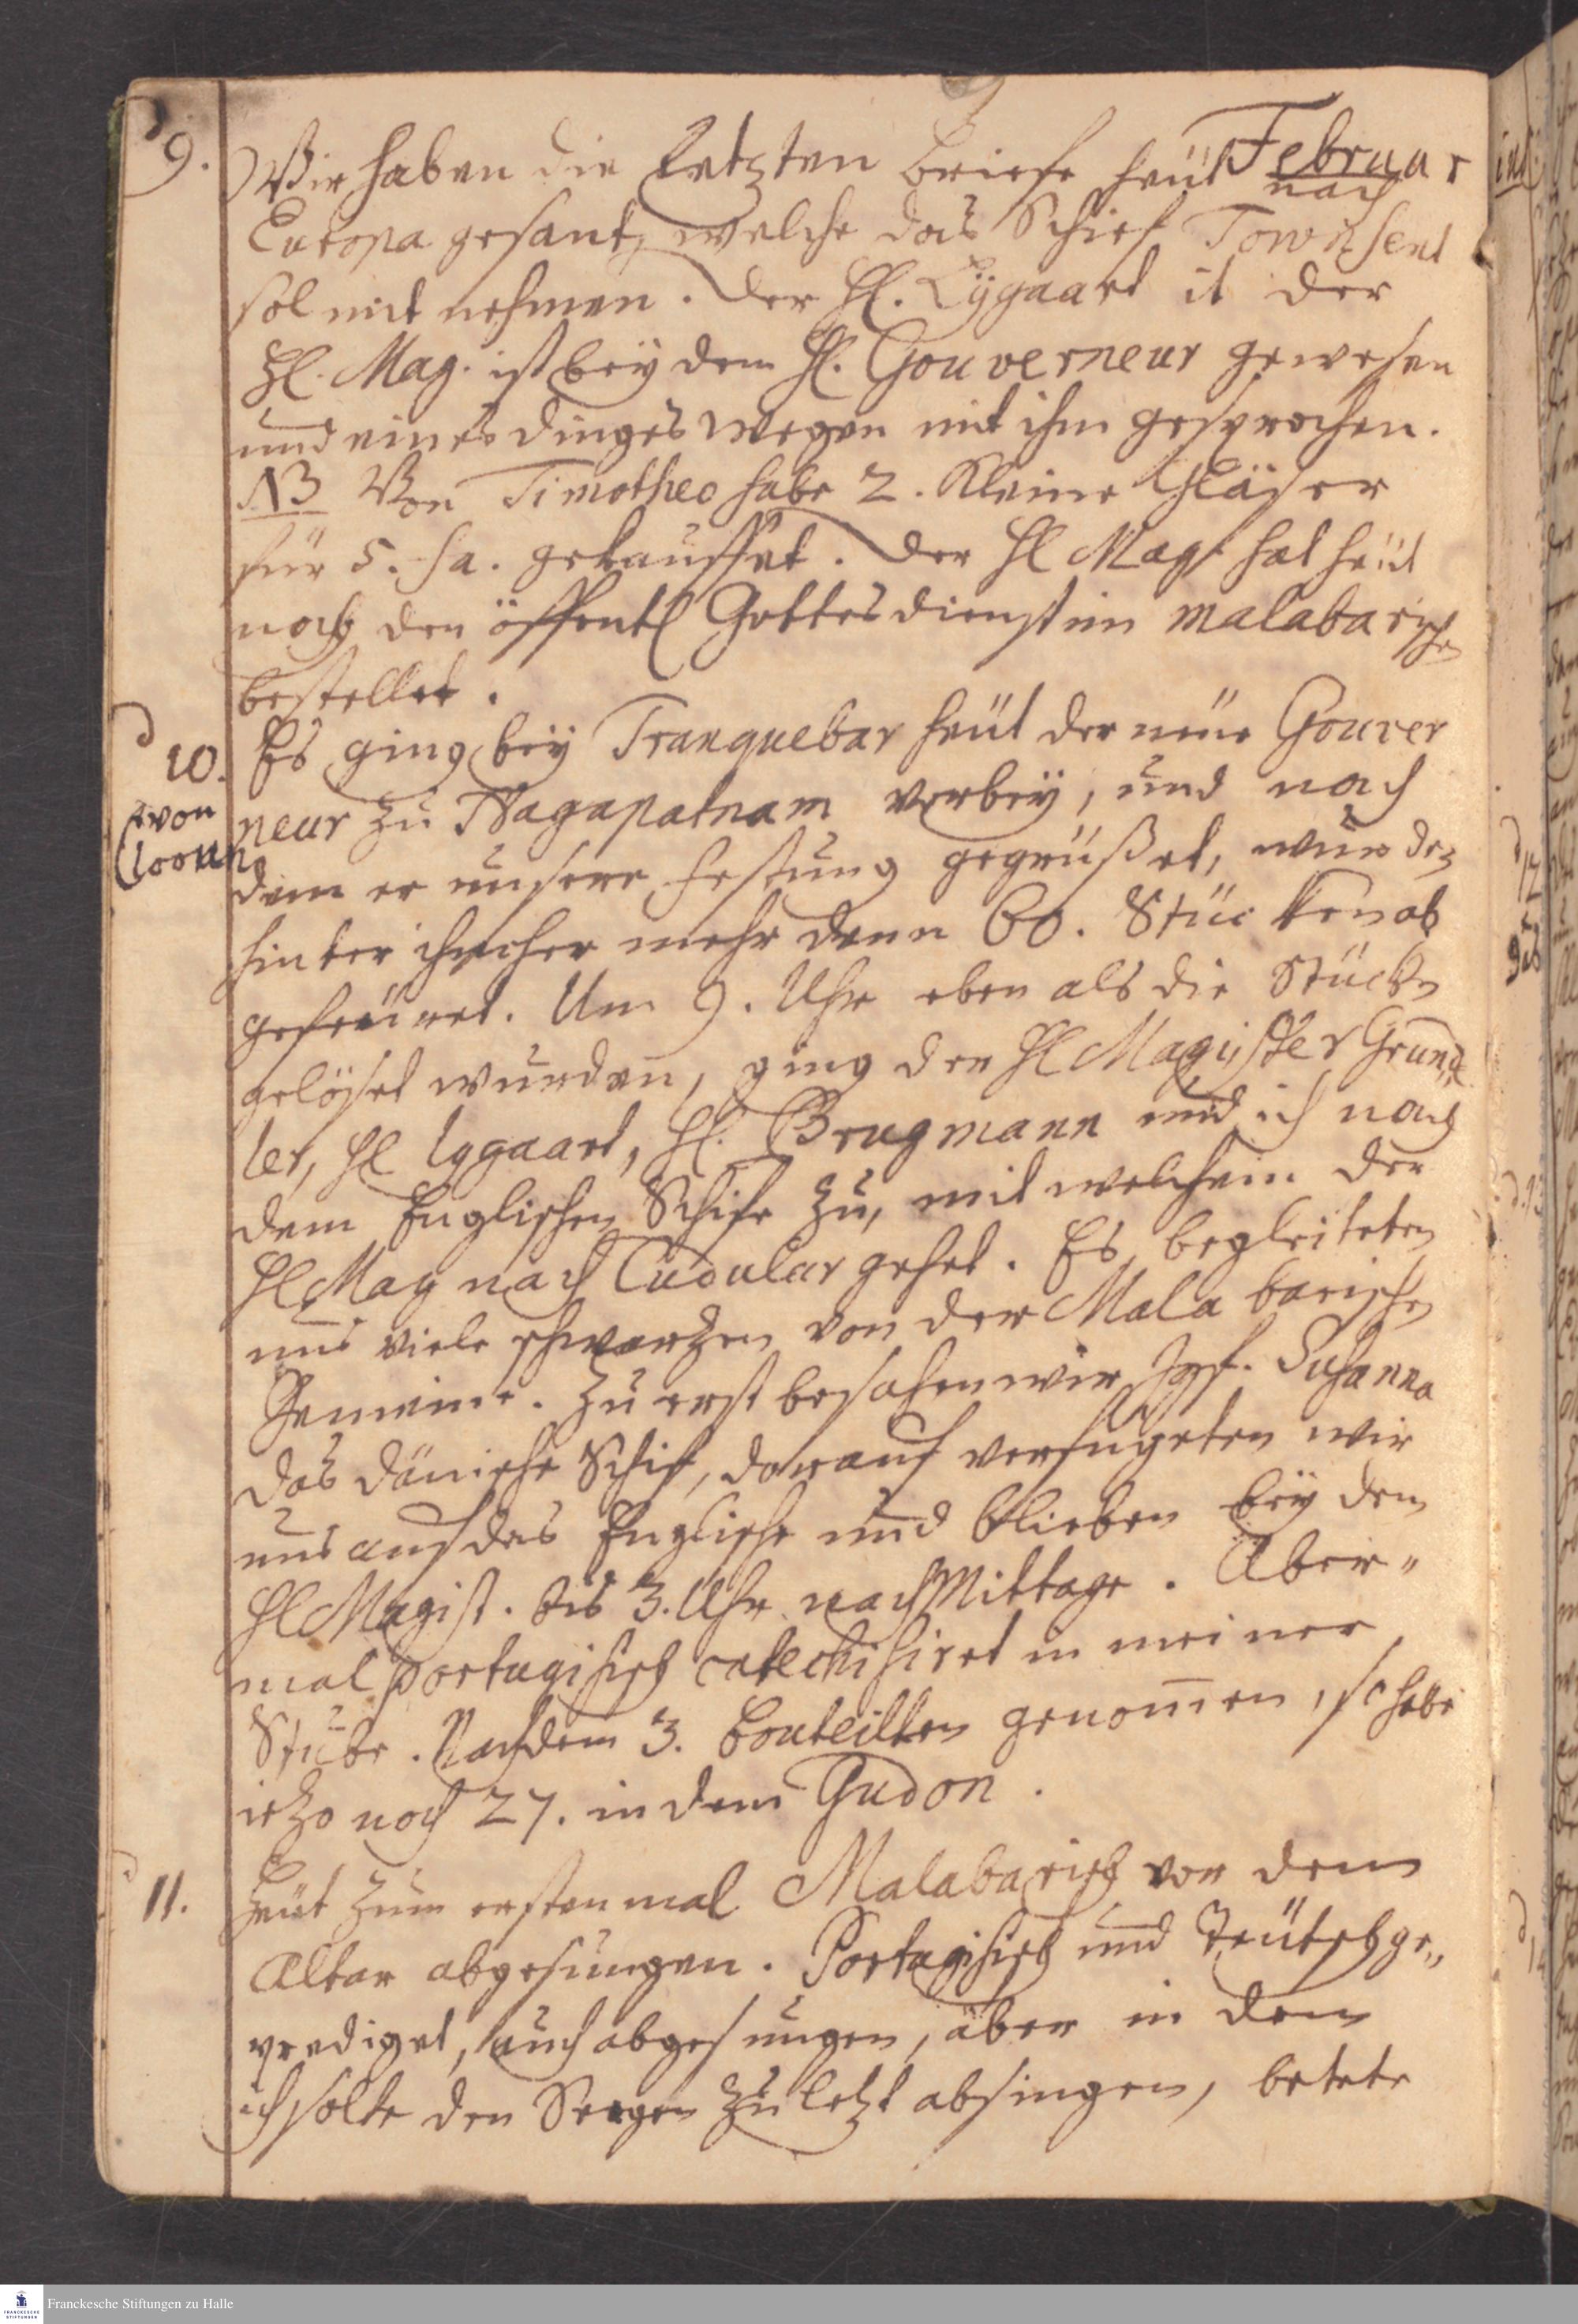 Februar
d 9. Wir haben die letzten Briefe heüt nach
Europa gesant, welche das Schief Townsent
sol mit nehmen. Der Hl. Lÿgaart it der
Hl. Mag. ist beÿ dem Hl. Gouverneur gewesen
und eines dinges wegen mit ihm gesprochen.
NB Von Timotheo habe 2. Kleine Gläser
für 5. fa. gekauffet. Der Hl Mag. hat heüt
noch den öffentl Gottesdienst im malabarischen
bestellet.
d 10. Es ging beÿ Tranquebar heüt der neüe Gouver
neur zu Nagapatnam verbeÿ, und nach
von
Cloon
dem er unsere Festung gegrüßet, wurden
hinter ihm her mehr denn 60. Stücken ab
gefeüret. Um 9. Uhr eben als die Stücken
gelöset wurden, ging der Hl Magister Gründ„
ler, Hl lygaart, Hl. Brugmann und ich nach
dem Englischen Schife zu, mit welchem der
Hl Mag nach Cudulur gehet. Es begleiteten
uns viele schwarzen von der Malabarischen
Gemeine. Zu erst besahen wir Jgf. Susanna
das dänische Schif, darauf verfügeten wir
uns auf das Englische und blieben beÿ dem
Hl Magist. bis 3. Uhr nach Mittage. Aber„
mal portugisisch catechisiret in meiner
Stube. Nachdem 3. Bouteillen genom̄en, so habe
ietzo noch 27. in dem Gudon.
d 11. Heüt zum ersten mal Malabarisch vor dem
Altar abgesungen. Portugisisch und Teütsch ge„
prediget, auch abgesungen, aber in dem
ich solte den Seegen zu letzt absingen, betete
Franckesche Stiftungen zu Halle
FRANCKESCHE
STIFTUNGEN